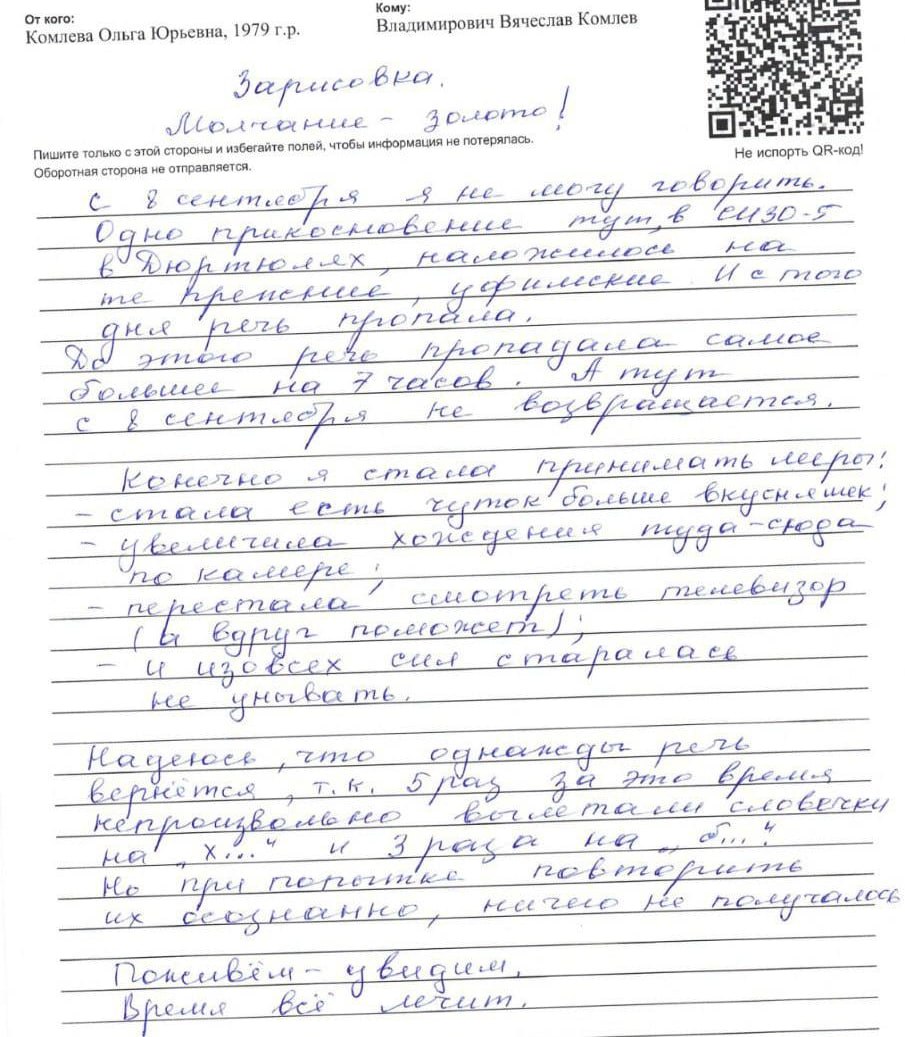 От кого:
Комлева Ольга Юрьевна, 1979 г.р.
Кому:
Владимирович Вячеслав Комлев
Зарисовка.
Молчание - золото!
Пишите только с этой стороны и избегайте полей, чтобы информация не потерялась.
Оборотная сторона не отправляется.
Не испорть QR-код!
С 8 сентября я не могу говорить.
Одно прикосновение тут, в СИЗО-5
в Дюртюлях, наложилось на
те прежние, уфимские. И с того
дня речь пропала.
До этого речь пропадала самое
большее на 7 часов. А тут
с 8 сентября не возвращается.
Конечно я стала принимать меры:
- стала есть чуток больше вкусняшек;
- увеличила хождения туда-сюда
по камере;
- перестала смотреть телевизор
(а вдруг поможет);
- и изо всех сил старалась
не унывать.
Надеюсь, что однажды речь
вернётся, т.к. 5 раз за это время
непроизвольно вылетали словечки
на „х..." и 3 раза на „б...".
Но при попытке повторить
их осознанно, ничего не получалось
Поживём - увидим.
Время всё лечит.